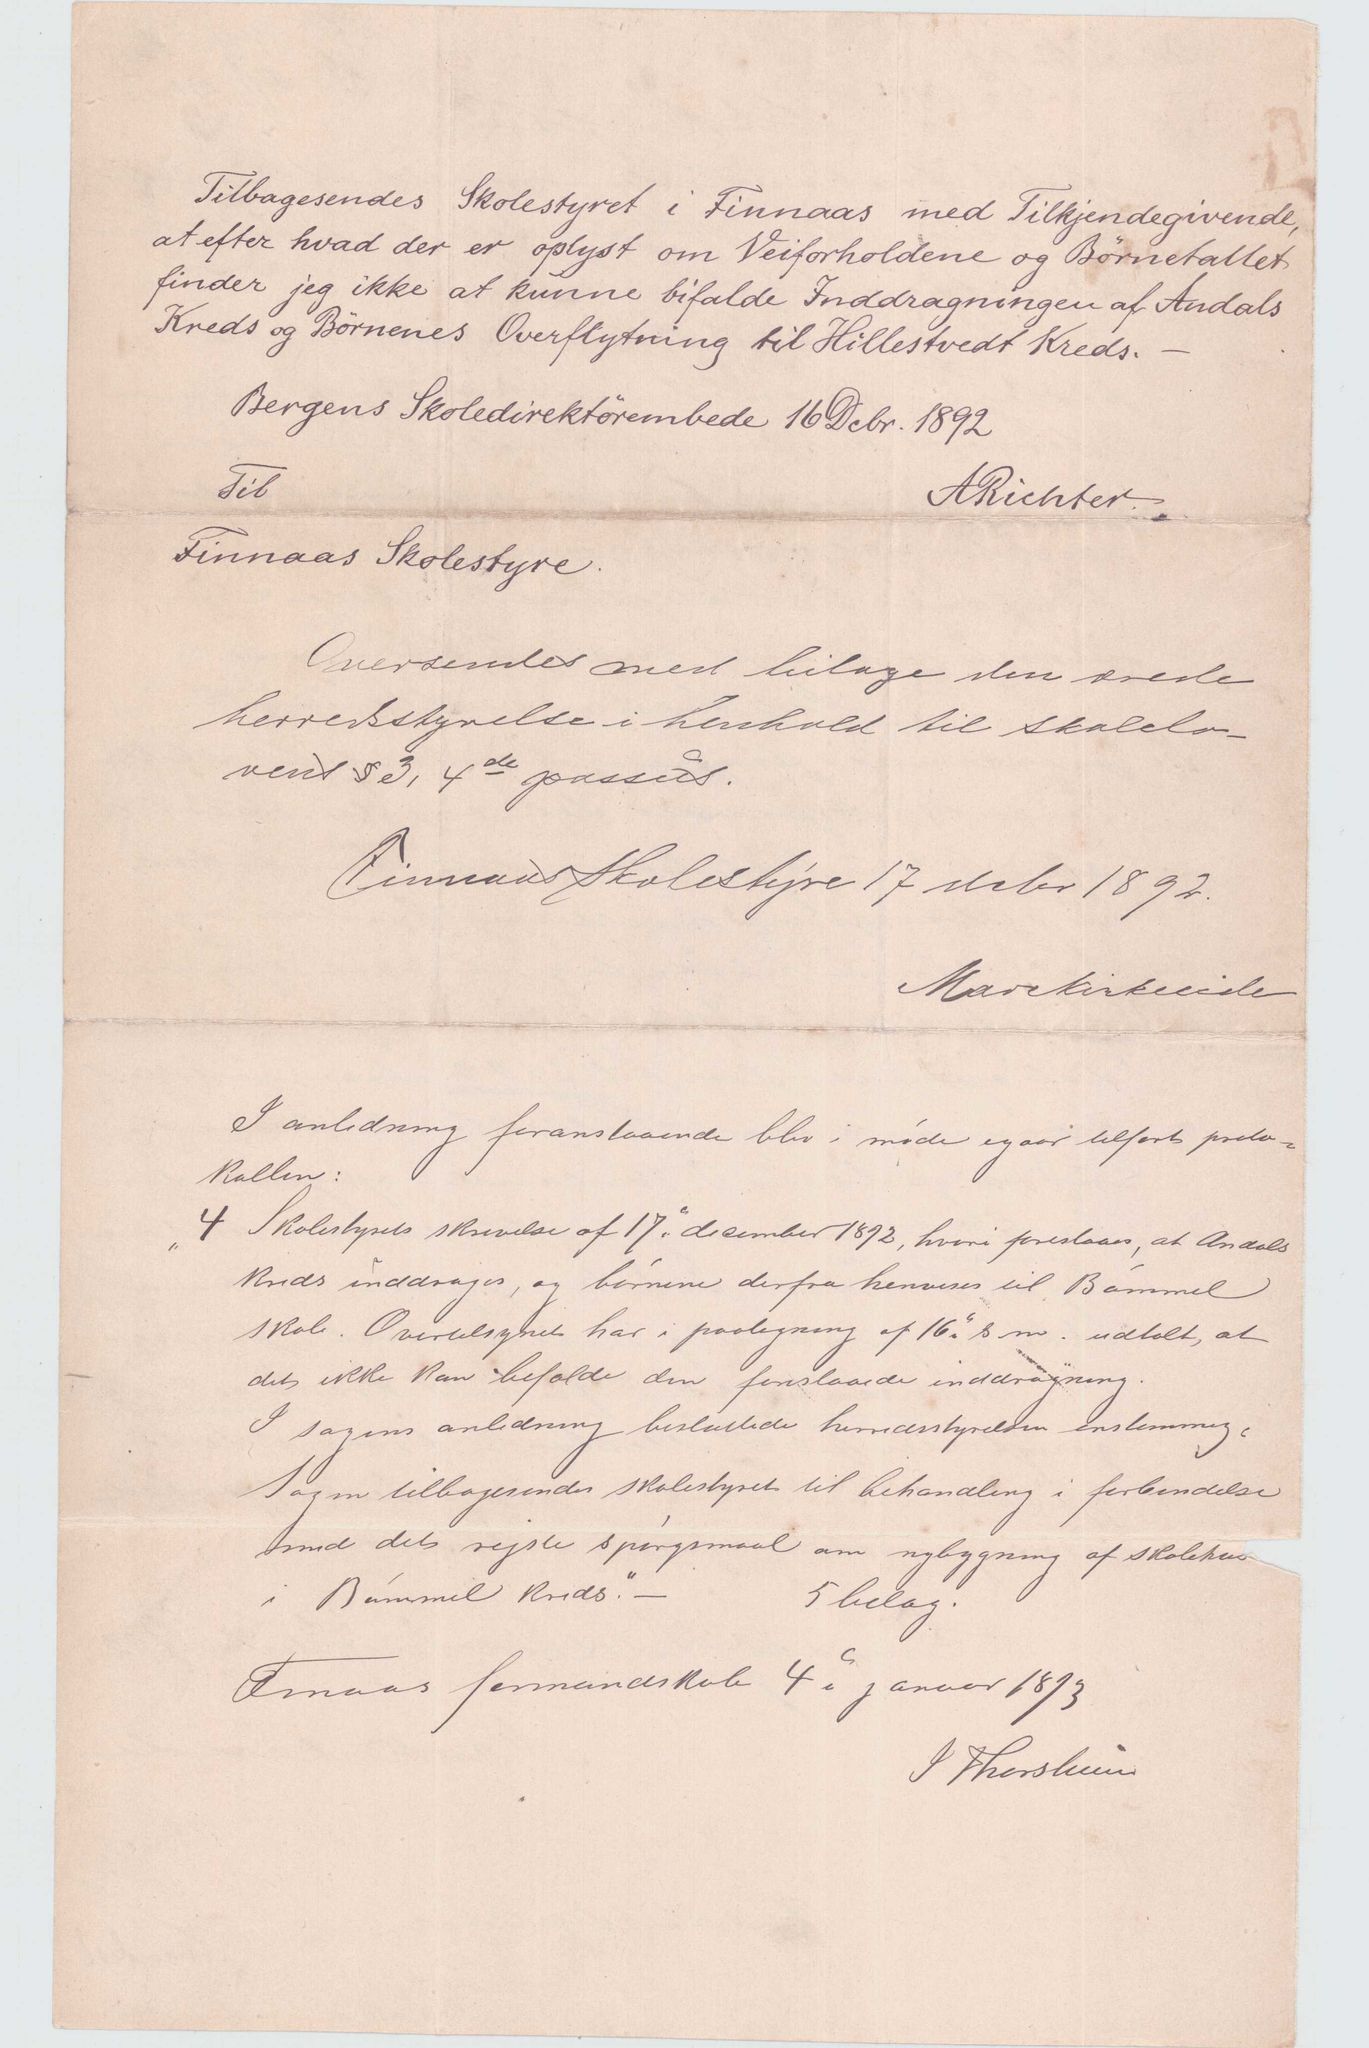 Tilbagesendes Skolestyret i Finnaas med Tilkjendegivende,
at efter hvad der er oplyst om Veiforholdene og Börnetallet
finder jeg ikke at kunne bifalde Inddragningen af Andals
Kreds og Börnenes Overflytning til Hillestvedt Kreds. —
Bergens Skoledirektörembede 16 Debr. 1892
Til
ARichter.
Finnaas Skolestyre.
Oversendes med bilage den ærede
herredsstyrelse i henhold til skolelo-
vens § 3, 4de passus.
Finnaas Skolestyre 17 debr 1892.
I anledning foranstaaende blev i møde igaar tilført proto-
kollen:
"4 Skolestyrets skrivelse af 17. december 1892, hvori foreslaaes, at Andals
kreds inddrages, og börnene derfra henvises til Bömmel
skole. Overtilsynet har i paategning af 16. s. m. udtalt, at
det ikke kan bifalde den foreslaaede inddragning.
I sagens anledning besluttede herredsstyrelsen enstemmig:
Sagen tilbagesendes skolestyret til behandling i forbindelse
med det rejste spörgsmaal om nybygning af skolehus
i Bömmel kreds." — 5 bilag.
Finaas formandskab 4 januar 1893
J Thorsheim